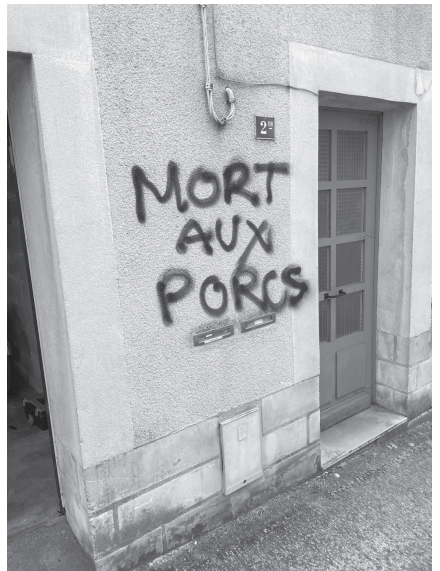 2 BIS
MORT
AUX
PORCS